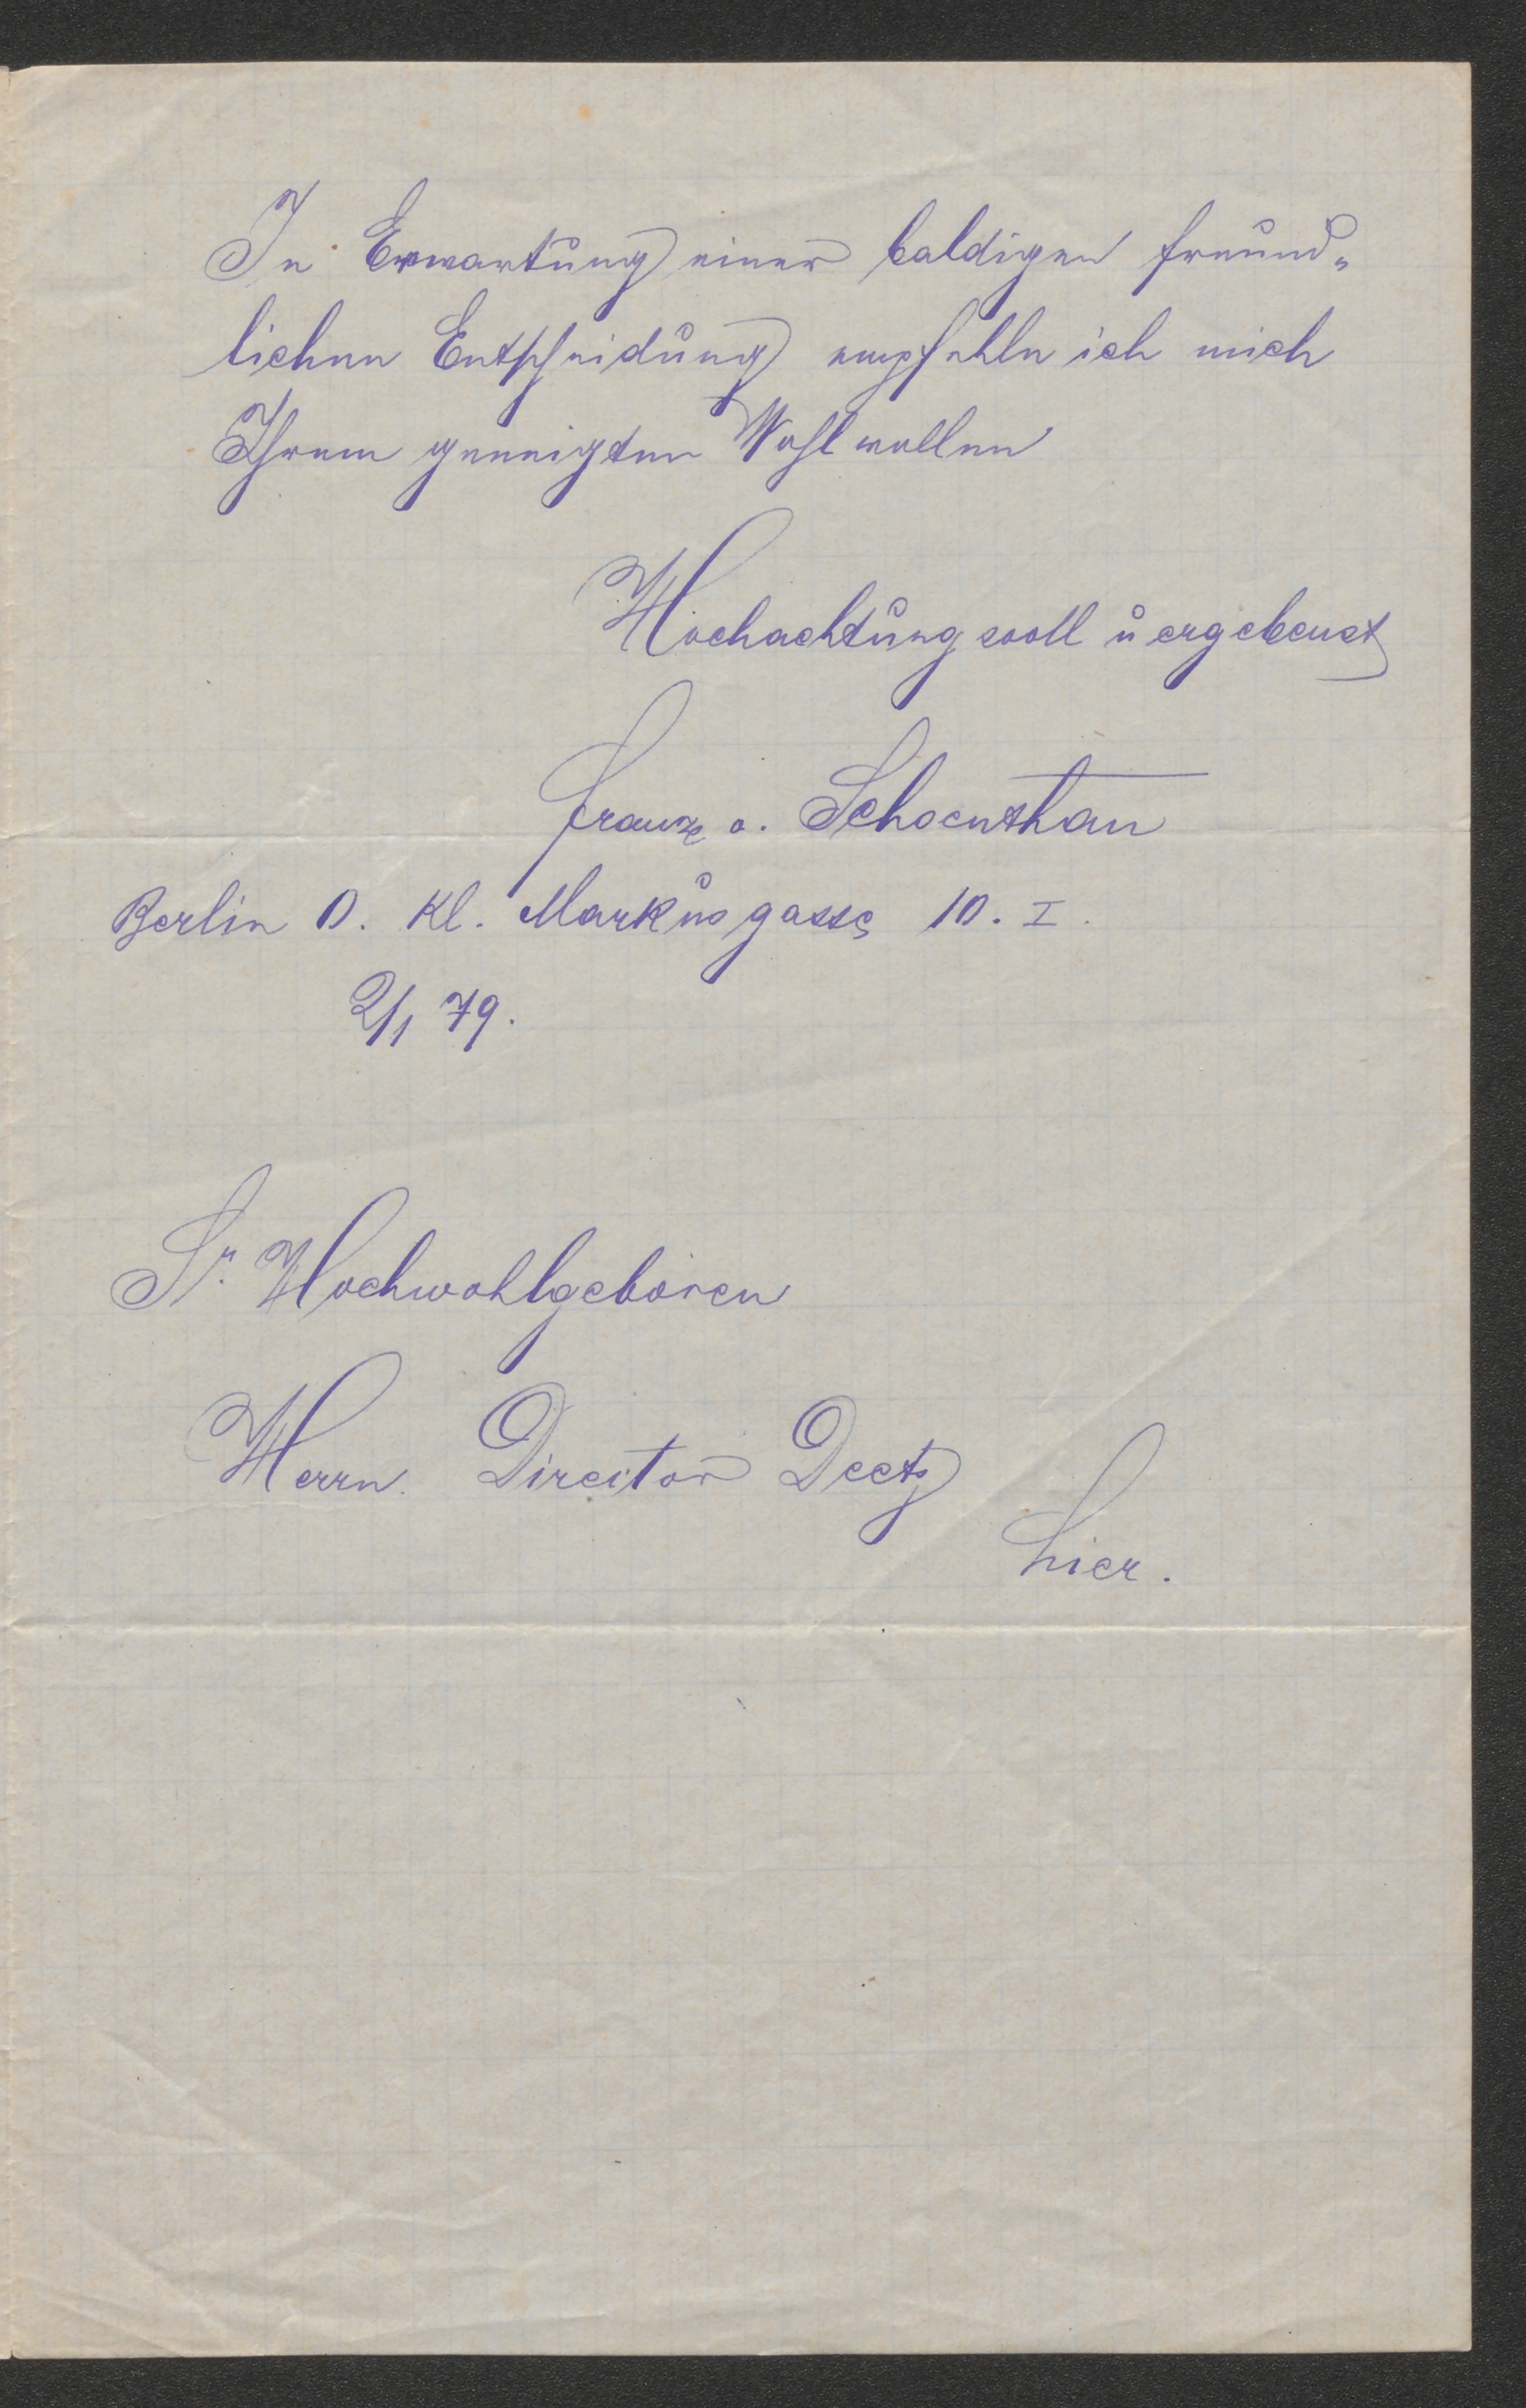 In Erwartung einer baldigen freund„
lichen Entscheidung empfehle ich mich
Ihrem geneigten Wohlwollen
Hochachtungsvoll u ergebenst
Franz v. Schoenthan
Berlin O. Kl. Markusgasse 10. I.
2/1 79.
Sr. Hochwohlgeboren
Herrn Director Deetz
hier.